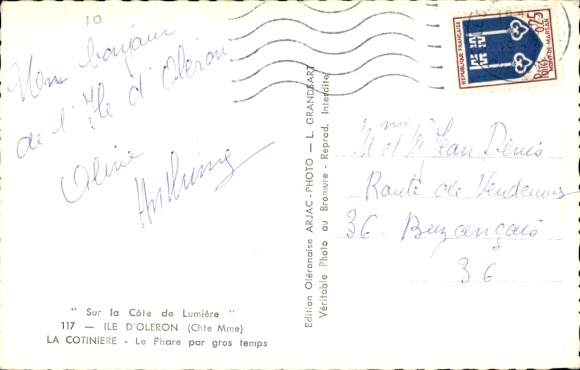 10
Mons bonjour
de l'Ile d'Oléron
Aline
Anthony
" Sur la Côte de Lumière "
117 — ILE D'OLERON (Chte Mme)
LA COTINIERE - Le Phare par gros temps
Edition Oléronaise ARJAC-PHOTO — L. GRANDSART
Véritable Photo au Bromure - Reprod. Interdite
REPUBLIQUE FRANÇAISE
0,25
POSTES
MONT-DE-MARSAN
Mme et Mr Jean Denis
Route de Vendoeuvres
36. Buzançais
36